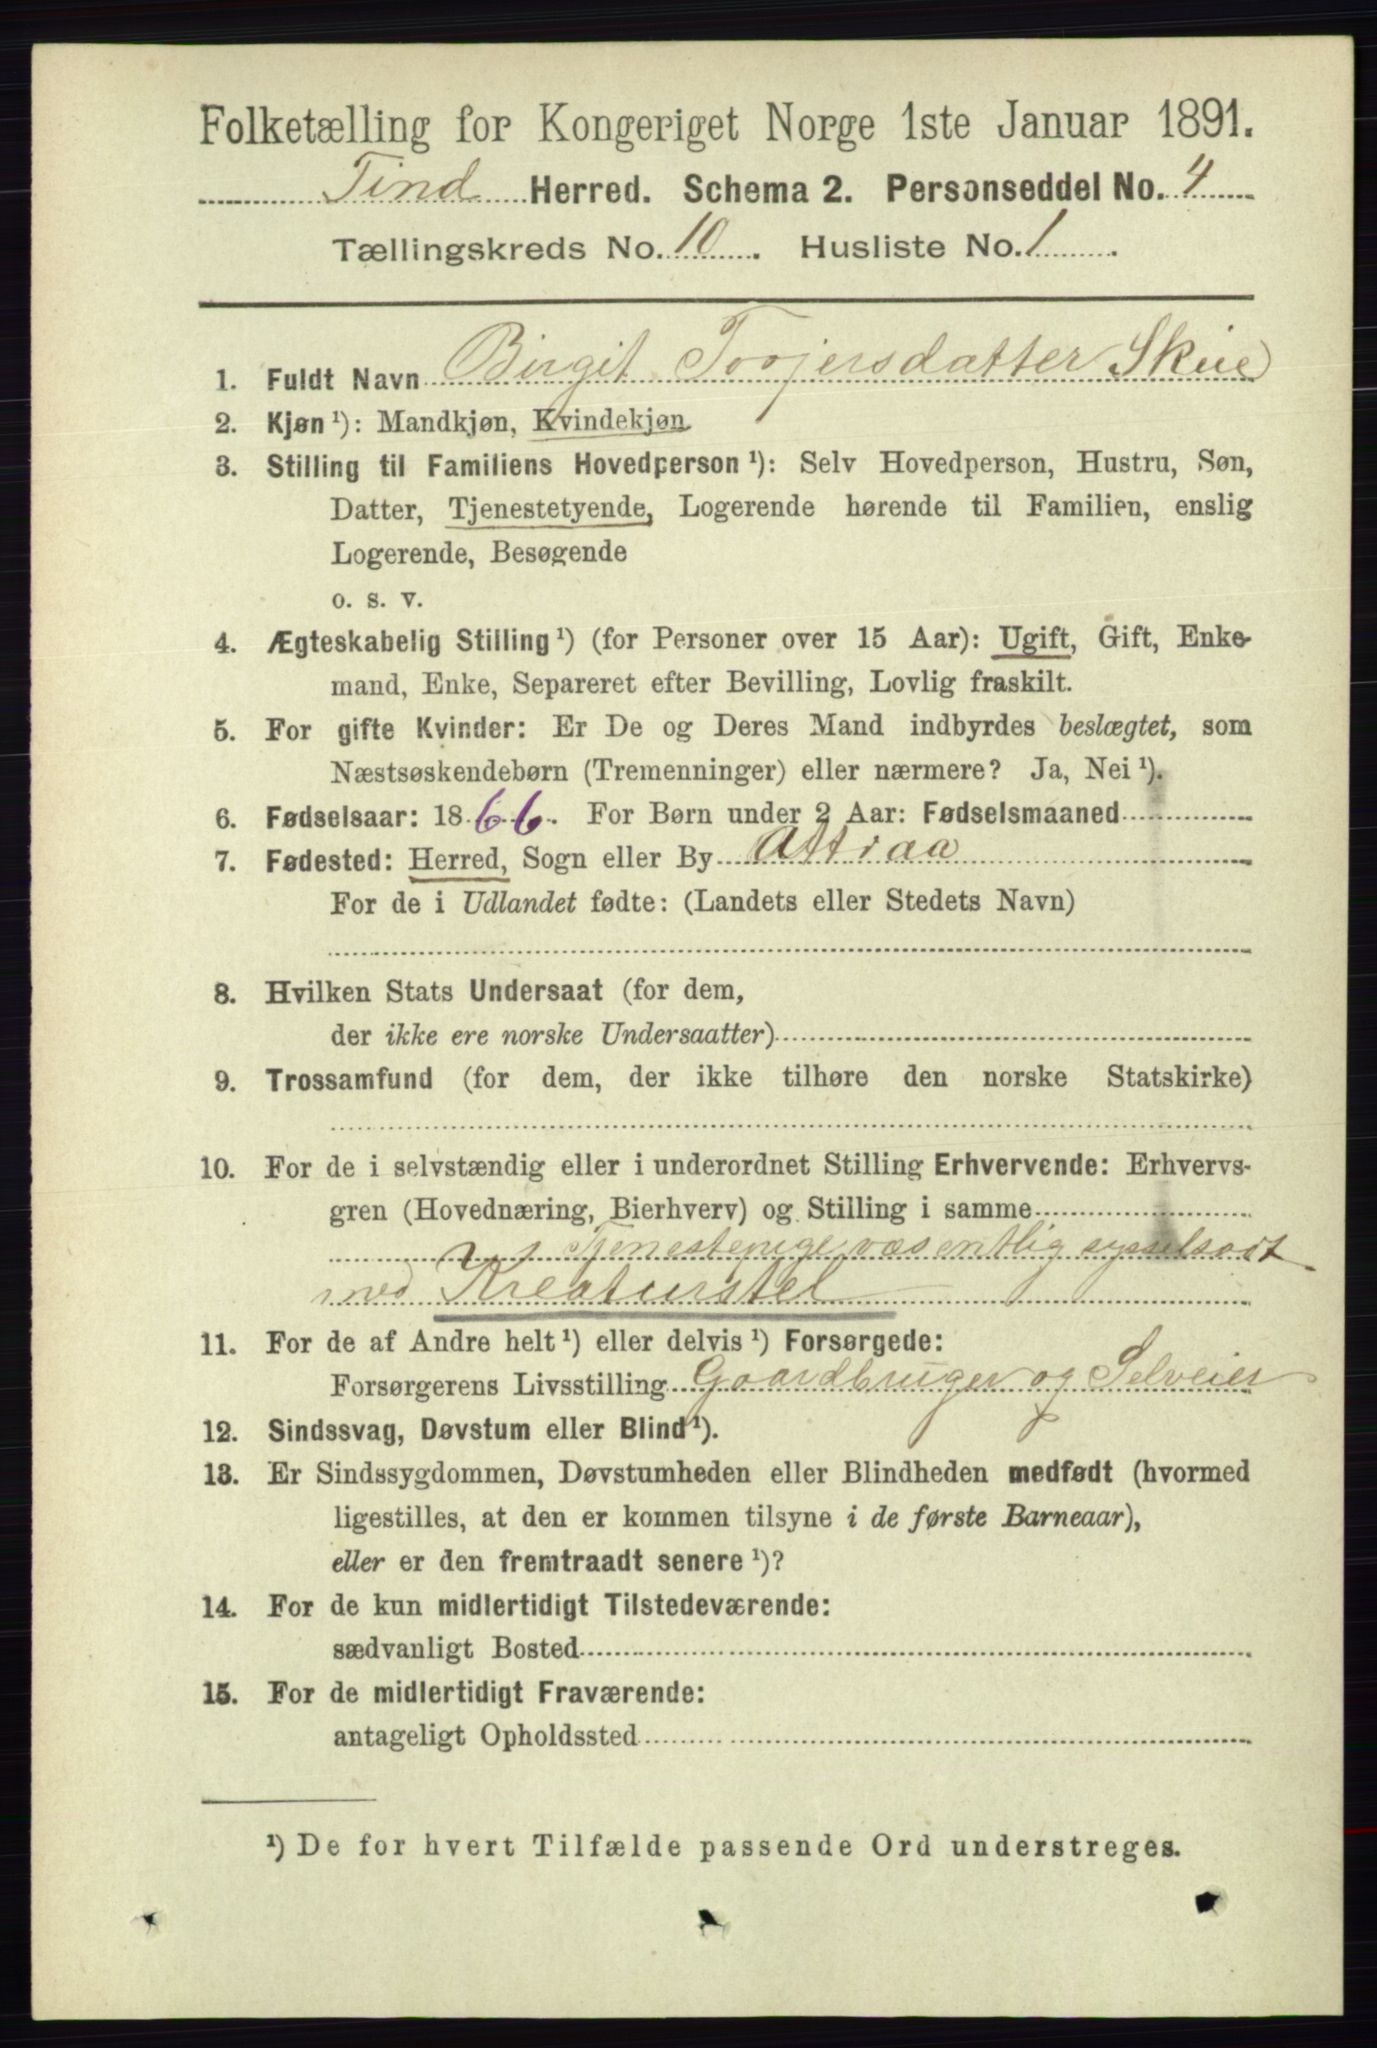 Folketælling for Kongeriget Norge 1ste Januar 1891.
Tind Herred. Schema 2. Personseddel No. 4
Tællingskreds No. 10. Husliste No. 1.
1. Fuldt Navn Birgit Torjersdatter Skeie
2. Kjøn ¹): Mandkjøn, Kvindekjøn
3. Stilling til Familiens Hovedperson ¹): Selv Hovedperson, Hustru, Søn,
Datter, Tjenestetyende, Logerende hørende til Familien, enslig
Logerende, Besøgende
o. s. v.
4. Ægteskabelig Stilling ¹) (for Personer over 15 Aar): Ugift, Gift, Enke-
mand, Enke, Separeret efter Bevilling, Lovlig fraskilt.
5. For gifte Kvinder: Er De og Deres Mand indbyrdes beslægtet, som
Næstsøskendebørn (Tremenninger) eller nærmere? Ja, Nei ¹).
6. Fødselsaar: 1866. For Børn under 2 Aar: Fødselsmaaned
7. Fødested: Herred, Sogn eller By Attraa
For de i Udlandet fødte: (Landets eller Stedets Navn)
8. Hvilken Stats Undersaat (for dem,
der ikke ere norske Undersaatter)
9. Trossamfund (for dem, der ikke tilhøre den norske Statskirke)
10. For de i selvstændig eller i underordnet Stilling Erhvervende: Erhvervs-
gren (Hovednæring, Bierhverv) og Stilling i samme
Tjenestepige væsentlig sysselsadt
med Kreaturstel
11. For de af Andre helt ¹) eller delvis ¹) Forsørgede:
Forsørgerens Livsstilling Gaardbruger og Selveier
12. Sindssvag, Døvstum eller Blind ¹).
13. Er Sindssygdommen, Døvstumheden eller Blindheden medfødt (hvormed
ligestilles, at den er kommen tilsyne i de første Barneaar),
eller er den fremtraadt senere ¹)?
14. For de kun midlertidigt Tilstedeværende:
sædvanligt Bosted
15. For de midlertidigt Fraværende:
antageligt Opholdssted
¹) De for hvert Tilfælde passende Ord understreges.